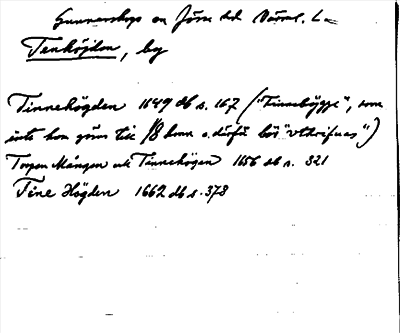 Gunnarskogs sn Jösse hd Värml. l.
Tenhöjden, by
Tinnehögden 1649 db s. 167 ("Tinnebögge", som
inte kan göras till 1/8 hmn o. därför bör "vthrifuas")
Torpen Mången och Tinnehögen 1656 db s. 321
Tine Högden 1662 db s. 378